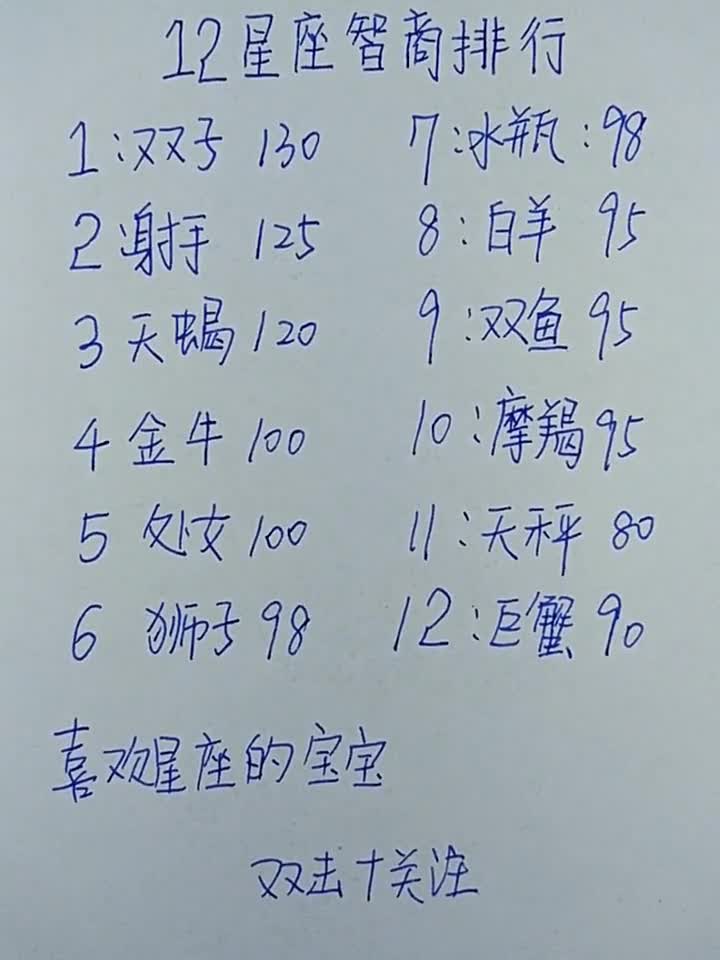 12星座智商排行
1:双子 130
2 射手 125
3 天蝎 120
4 金牛 100
5 处女 100
6 狮子 98
7:水瓶:98
8:白羊 95
9:双鱼 95
10:摩羯 95
11:天秤 80
12:巨蟹 90
喜欢星座的宝宝
双击+关注